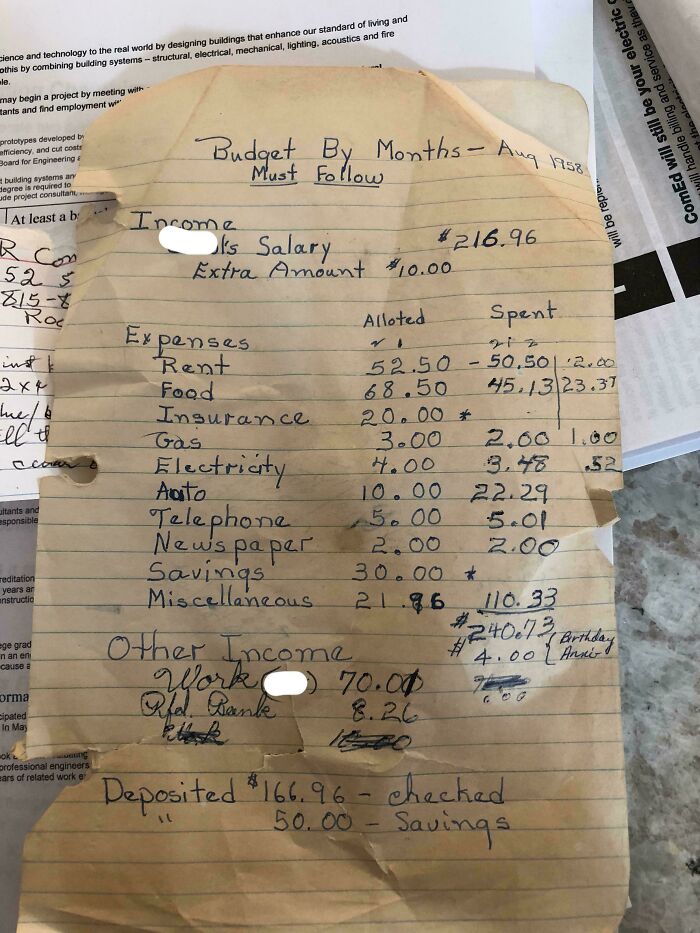 cience and technology to the real world by designing buildings that enhance our standard of living and
othis by combining building systems -- structural, electrical, mechanical, lighting, acoustics and fire
may begin a project by meeting with
tants and find employment
prototypes developed by
efficiency, and cut costs
Board for Engineering
t building systems an
degree is required to
ude project consultant,
At least a b
R Con
52 S
815-8
Roc
2x4
ultants and
esponsible
reditation
years an
nstructio
ege grad
n an en
cause a
orma
cipated
In May
professional engineers
ears of related work e
ComEd will still be your electric
will handle billing and service as they
will be
Budget By Months - Aug 1958
Must Follow
Income
's Salary $216.96
Extra Amount $10.00
Alloted Spent
Expenses
Rent 52.50 - 50.50 2.00
Food 68.50 45.13 23.37
Insurance 20.00 *
Gas 3.00 2.00 1.00
Electricity 4.00 3.48 .52
Auto 10.00 22.29
Telephone 5.00 5.01
Newspaper 2.00 2.00
Savings 30.00 *
Miscellaneous 21.96 110.33
$240.73
Other Income $4.00 { Birthday Anniv
Work ) 70.01
Rfd. Bank 8.26
Deposited $166.96 - checked
" 50.00 - Savings